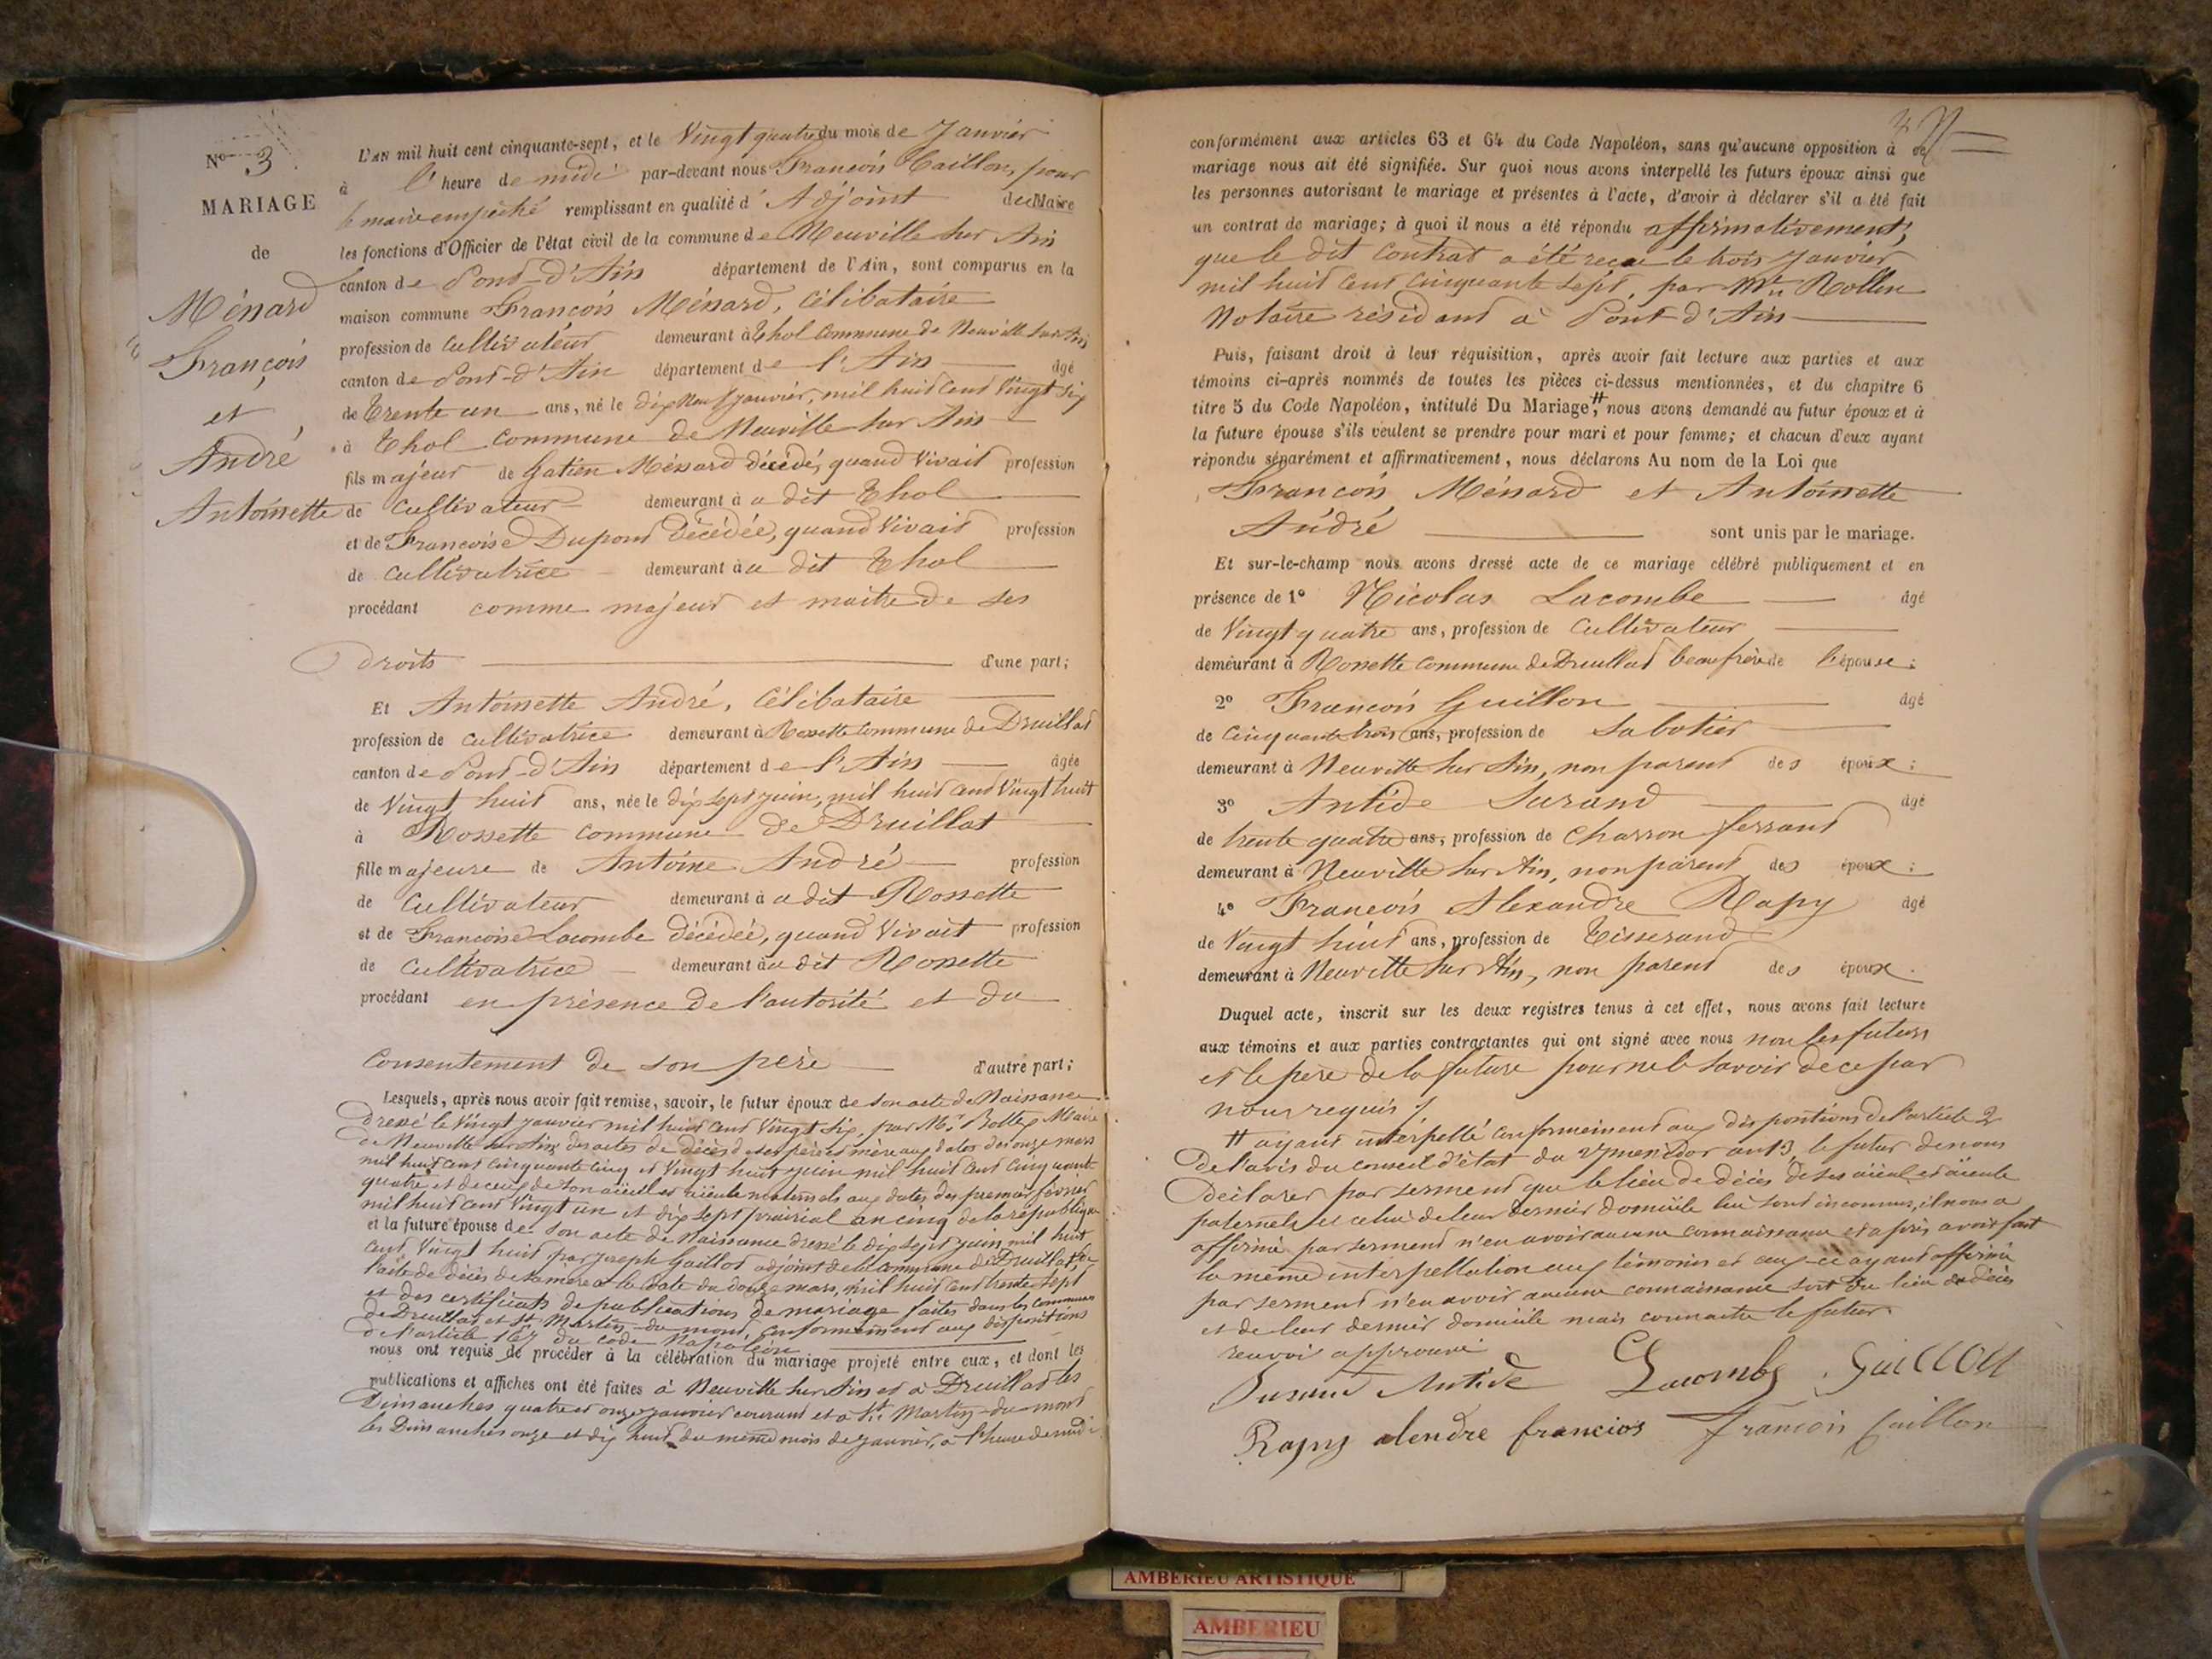 N° 3
MARIAGE
de
Ménard
François
et
André
Antoinette
L'AN mil huit cent cinquante-sept, et le Vingt quatre du mois de Janvier
à l'heure de midi par-devant nous François Caillon, pour
le maire empêché remplissant en qualité d'Adjoint du Maire
les fonctions d'Officier de l'état civil de la commune de Neuville sur Ain
canton de Pont-d'Ain département de l'Ain, sont comparus en la
maison commune François Ménard, Célibataire
profession de Cultivateur demeurant à Thol Commune de Neuville sur Ain
canton de Pont-d'Ain département de l'Ain âgé
de Trente un ans, né le dix Neuf janvier, mil huit cent Vingt Six
à Thol commune de Neuville sur Ain
fils majeur de Gatien Ménard décédé, quand Vivait profession
de Cultivateur demeurant à u dit Thol
et de Francoise Dupont décédée, quand Vivait profession
de Cultivatrice demeurant à u dit Thol
procédant comme majeur et maitre de ses
droits d'une part;
Et Antoinette André, Célibataire
profession de cultivatrice demeurant à Rossette Commune de Druillat
canton de Pont-d'Ain département de l'Ain âgée
de Vingt huit ans, née le dix sept juin, mil huit cent Vingt huit
à Rossette commune de Druillat
fille majeure de Antoine André profession
de Cultivateur demeurant à u dit Rossette
et de Francoise Lacombe décédée, quand Vivait profession
de Cultivatrice demeurant à u dit Rossette
procédant en présence de l'autorité et du
Consentement de son père d'autre part;
Lesquels, après nous avoir fait remise, savoir, le futur époux de son acte de Naissance
dressé le Vingt janvier mil huit cent Vingt Six, par Mr Maire
de Neuville sur Ain des actes de décès de ses père et mère aux dates des onze mars
mil huit cent cinquante cinq et Vingt huit juin mil huit cent cinquante
quatre et de ceux de son aïeul et aïeule maternels aux dates des premier février
mil huit cent Vingt un et dix sept prairial an cinq de la république
et la future épouse de son acte de Naissance dressé le dix sept juin, mil huit
cent, Vingt huit par Joseph Gaillot adjoint de la Commune de Druillat, de
l'acte de décès de sa mère à la date du douze mars, mil huit cent trente sept
et des certificats de publications de mariage faites dans les communes
de Druillat et St Martin-du mont, conformément aux dispositions
de l'article 167 du code Napoléon
nous ont requis de procéder à la célébration du mariage projeté entre eux, et dont les
publications et affiches ont été faites à Neuville sur Ain et à Druillat les
Dimanches quatre et onze janvier courant et à St Martin-du-mont
les Dimanches onze et dix huit du même mois de janvier, à l'heure de midi
conformément aux articles 63 et 64 du Code Napoléon, sans qu'aucune opposition à ce
mariage nous ait été signifiée. Sur quoi nous avons interpellé les futurs époux ainsi que
les personnes autorisant le mariage et présentes à l'acte, d'avoir à déclarer s'il a été fait
un contrat de mariage; à quoi il nous a été répondu affirmativement,
que le dit Contrat a été reçu le trois Janvier
mil huit Cent Cinquante Sept, par Me Rollin
Notaire résidant à Pont-d'Ain
Puis, faisant droit à leur réquisition, après avoir fait lecture aux parties et aux
témoins ci-après nommés de toutes les pièces ci-dessus mentionnées, et du chapitre 6
titre 5 du Code Napoléon, intitulé Du Mariage, # nous avons demandé au futur époux et à
la future épouse s'ils veulent se prendre pour mari et pour femme; et chacun d'eux ayant
répondu séparément et affirmativement, nous déclarons Au nom de la Loi que
François Ménard et Antoinette
André sont unis par le mariage.
Et sur-le-champ nous avons dressé acte de ce mariage célébré publiquement et en
présence de 1° Nicolas Lacombe âgé
de Vingt quatre ans, profession de Cultivateur
demeurant à Rossette Commune de Druillat beau frère de l'épouse;
2° François Guillon âgé
de Cinquante trois ans, profession de Sabotier
demeurant à Neuville sur Ain, non parent des époux;
3° Antide Surand âgé
de trente quatre ans, profession de Charron ferrant
demeurant à Neuville sur Ain, non parent des époux;
4° François Alexandre Rapy âgé
de Vingt huit ans, profession de Tisserand
demeurant à Neuville sur Ain, non parent des époux.
Duquel acte, inscrit sur les deux registres tenus à cet effet, nous avons fait lecture
aux témoins et aux parties contractantes qui ont signé avec nous non les futurs
et le père de la future pour ne le savoir de ce par
nous requis
# ayant interpellé conformément aux dispositions de l'article 2
De l'avis du conseil d'état du 4 an 13, le futur de nous
Déclarer par serment que le lieu de décès de ses aïeul et aïeule
paternels et celui de leur dernier domicile lui sont inconnus, il nous a
affirmé par serment n'en avoir aucune connaissance et après avoir fait
la même interpellation aux témoins et ceux-ci ayant affirmé
par serment n'en avoir aucune connaissance soit du lieu de décès
et de leur dernier domicile mais connaitre le futur
renvoi approuvé
Surand Antide Lacombe Guillon
Rapy alendre francios François Caillon
AMBERIEU ARTISTIQUE
AMBERIEU